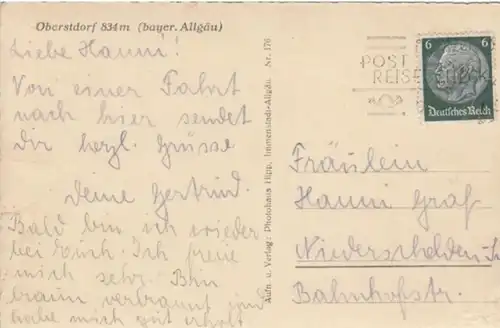 Oberstdorf 834m (bayer. Allgäu)
Liebe Hanni!
Von einer Fahrt
nach hier sendet
dir herzl. Grüsse
deine Gertrud.
Bald bin ich wieder
bei Euch. Ich freue
mich sehr. Bin
braun verbrannt und
habe mich gut erholt
Aufn. u. Verlag: Photohaus Hipp, Immenstadt-Allgäu. Nr. 176
POST
REISE
6 6
Deutsches Reich
Fräulein
Hanni Graf
Niederschelden
Bahnhofstr.